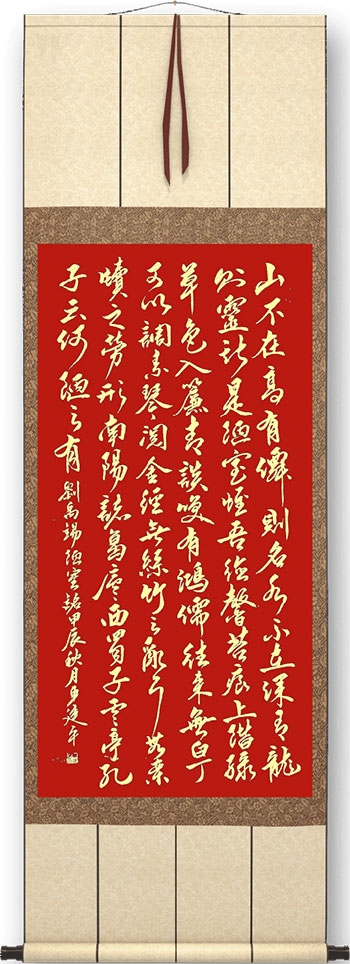 山不在高有僊則名水不在深有龍
則靈斯是陋室惟吾德馨苔痕上階綠
草色入簾青談笑有鴻儒往來無白丁
可以調素琴閱金經無絲竹之亂耳無案
牘之勞形南陽諸葛廬西蜀子雲亭孔
子云何陋之有 劉禹錫陋室銘甲辰秋月建平